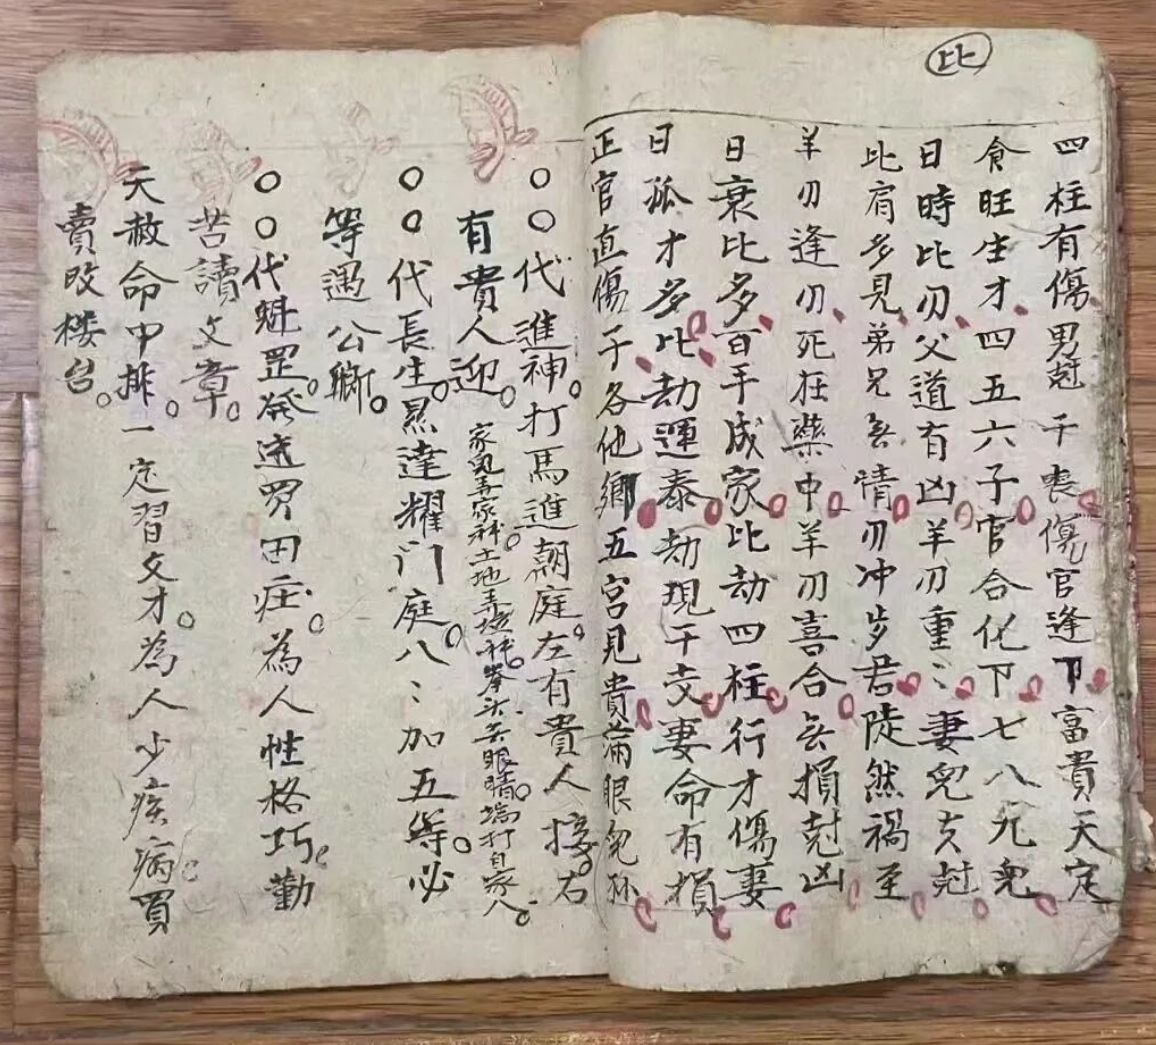 比
四柱有傷男尅子喪傷官逢下富貴天定
食旺生才四五六子官合化下七八九兒
日時比刃父道有凶羊刃重〻妻兒支尅
比肩多見弟兄无情刃冲岁君陡然禍至
羊刃逢刃死在藥中羊刃喜合无損尅凶
日衰比多百手成家比劫四柱行才傷妻
日孤才多比劫運泰劫現干支妻命有損
正官直傷子各他鄉五宮見貴滿眼兒孙
〇〇代進神打馬進朝庭左有貴人接右
有貴人迎
家鬼弄家神土地弄墳神拳头无眼睛端打自家人
〇〇代長生显達耀门庭八〻加五等必
等遇公卿
〇〇代魁罡発逹買田庄為人性格巧勤
苦讀文章
天赦命中排一定習文才為人少疾病買
賣改楼台